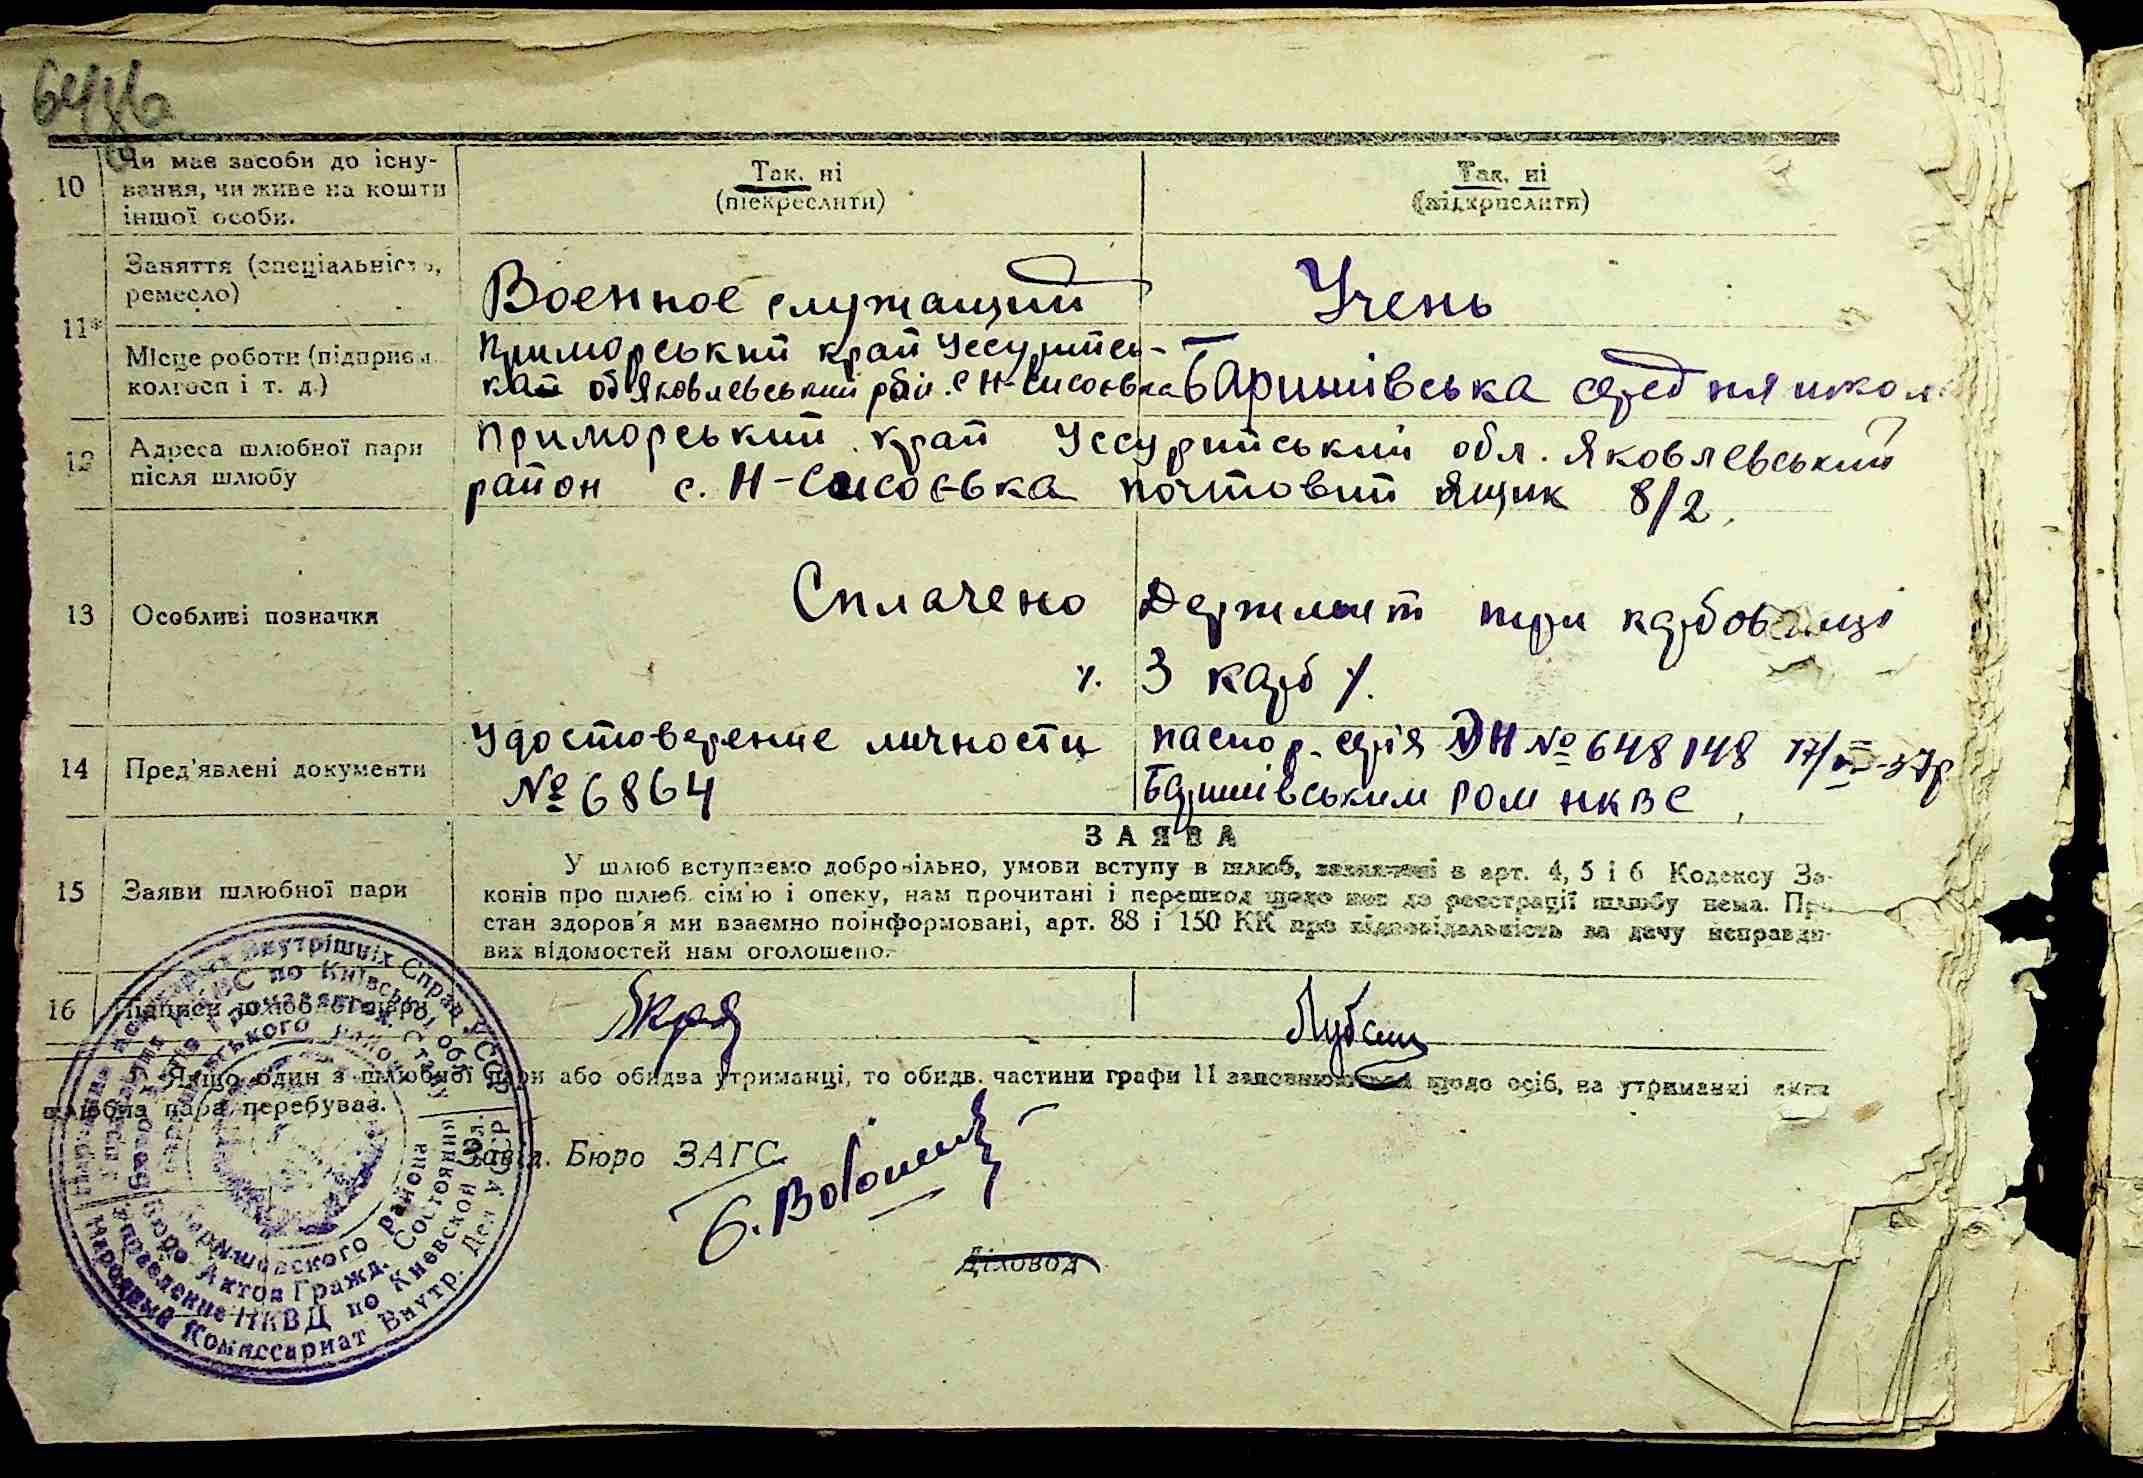 10 Чи має засоби до існу-
вання, чи живе на кошти
іншої особи.
Так, ні
(підкреслити)
Так, ні
(підкрислити)
11* Заняття (спеціальність,
ремесло)
Военное служащий
Учень
Місце роботи (підприєм.
колгосп і т. д.)
Приморський край Уссурийсь-
кай об Яковлевський рай. с Н-Сисоєвка
Баришівська середня школ
12 Адреса шлюбної пари
після шлюбу
Приморський край Уссурийський обл. Яковлевський
район с. Н-Сисоєвка почтовий ящик 8/2.
13 Особливі позначки
Сплачено Держмит три карбованці
3 карб
14 Пред'явлені документи
Удостоверение личности
№ 6864
паспор. серія ДН № 648148 17/ -37р
Баришівським РОМ НКВС
ЗАЯВА
15 Заяви шлюбної пари
У шлюб вступаємо добровільно, умови вступу в шлюб, зазначені в арт. 4, 5 і 6 Кодексу За-
конів про шлюб. сім'ю і опеку, нам прочитані і перешкод щодо нас до реєстрації шлюбу нема. Про
стан здоров'я ми взаємно поінформовані, арт. 88 і 150 КК про відповідальність за дачу неправди-
вих відомостей нам оголошено.
16 Підписи шлюбної пари
Якщо один з шлюбної пари або обидва утриманці, то обидв. частини графи 11 заповнюються щодо осіб, на утриманні яких
шлюбна пара перебуває.
Завід. Бюро ЗАГС
Діловод
Внутрішніх Справ УССР
по Київській обл.
Барышевского района
Бюро Актов Гражд. Состояния
Управление НКВД по Киевской обл.
Народный Комиссариат Внутр. Дел УССР